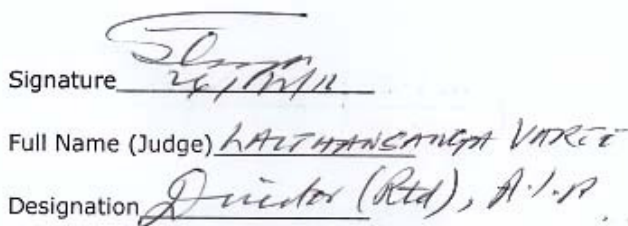 Signature
Full Name (Judge) LALTHANSANGA VARTE
Designation Director (Rtd), A.I.R.